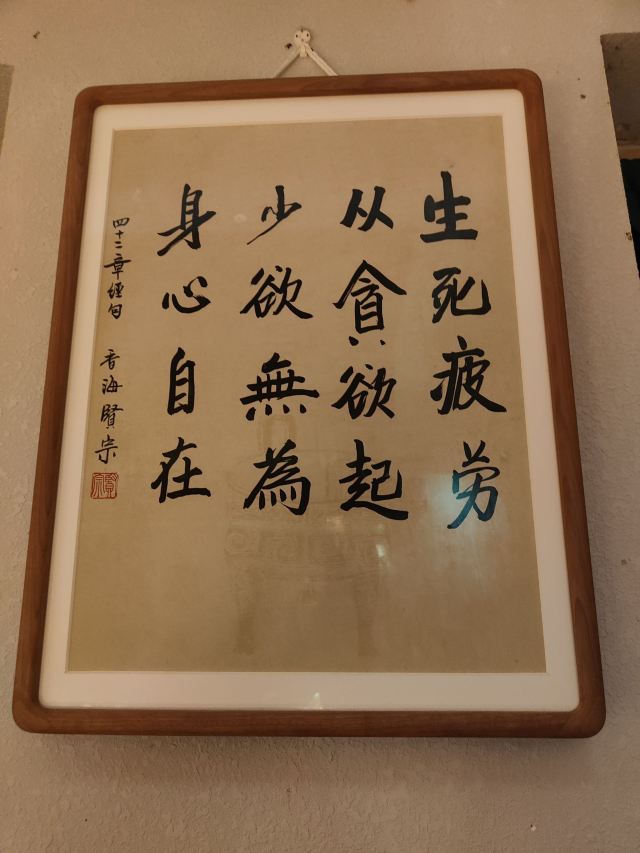 生死疲劳
从貪欲起
少欲無為
身心自在
四十二章經句 香海賢宗